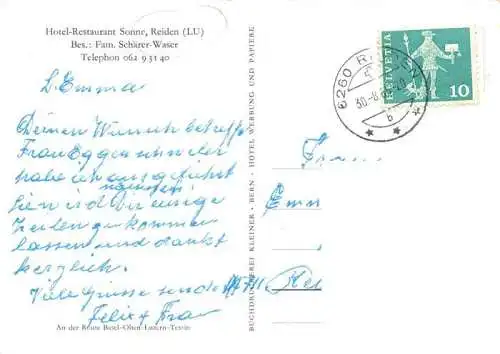 Hotel-Restaurant Sonne, Reiden (LU)
Bes.: Fam. Schärer-Waser
Telephon 062 9 31 40
L. Emma
Deinen Wunsch betreffs
Frau Eggenschwiler
habe ich ausgeführt
Sie
Dir einige
Zeilen zukommen
lassen und dankt
herzlich.
Viele Grüsse senden
Felix + Frau
An der Route Basel-Olten-Luzern-Tessin
BUCHDRUCKEREI KLEINER - BERN - HOTEL WERBUNG UND PAPIERE
6260 REIDEN
30.-8.
b
HELVETIA
10
Frau
Emm